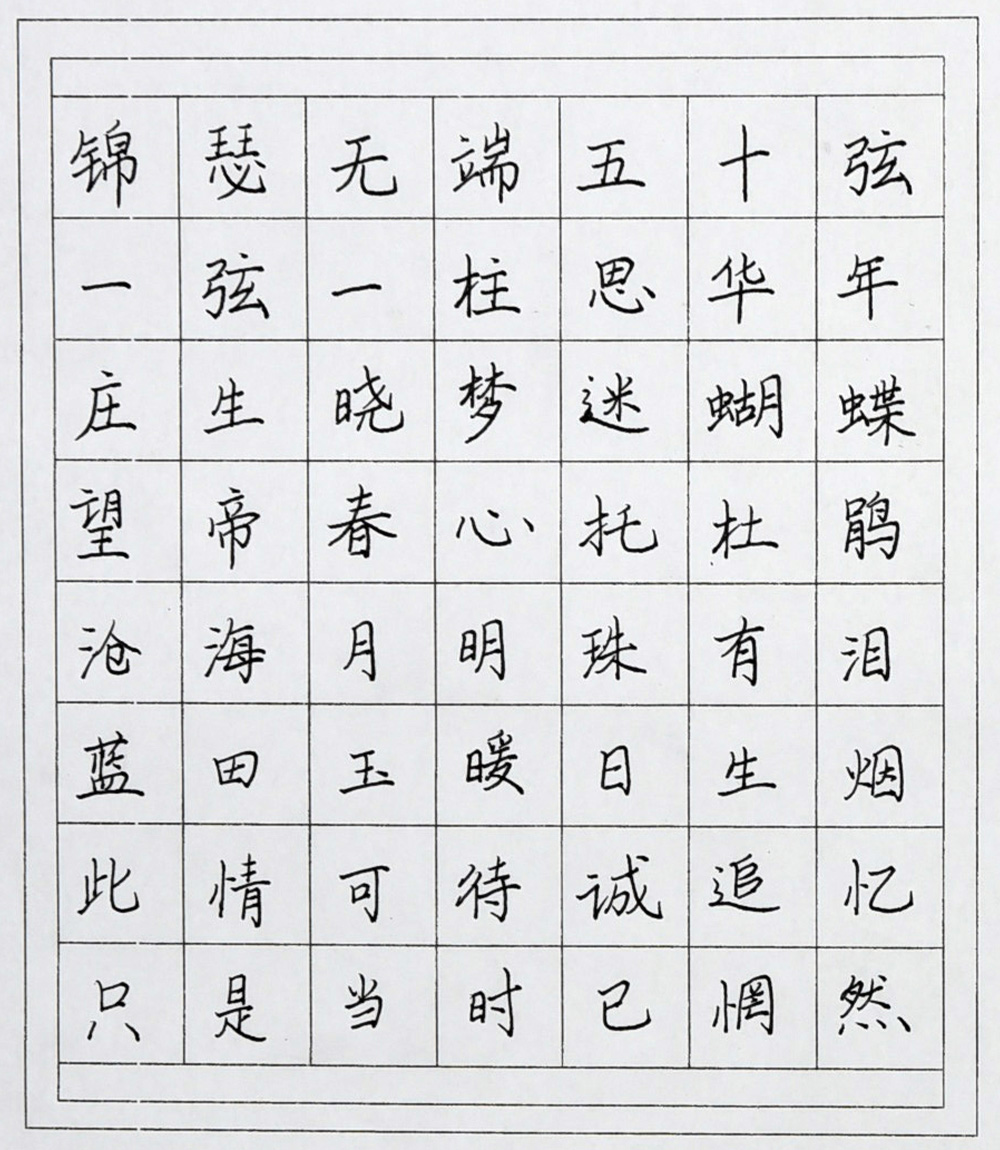 锦瑟无端五十弦
一弦一柱思华年
庄生晓梦迷蝴蝶
望帝春心托杜鹃
沧海月明珠有泪
蓝田玉暖日生烟
此情可待诚追忆
只是当时已惘然